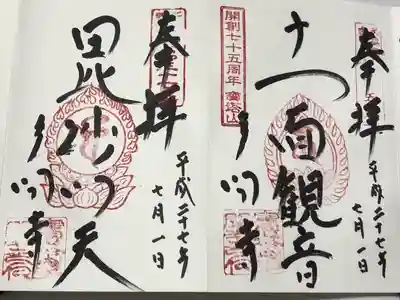 奉拝
十一面観音
多聞寺
平成二十七年
七月一日
開創七十五周年 宝塔山
奉拝
毘沙門天
多聞寺
平成二十七年
七月一日